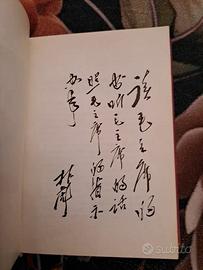 读毛主席的
书听毛主席的话
照毛主席的指示
办事
林彪
subito